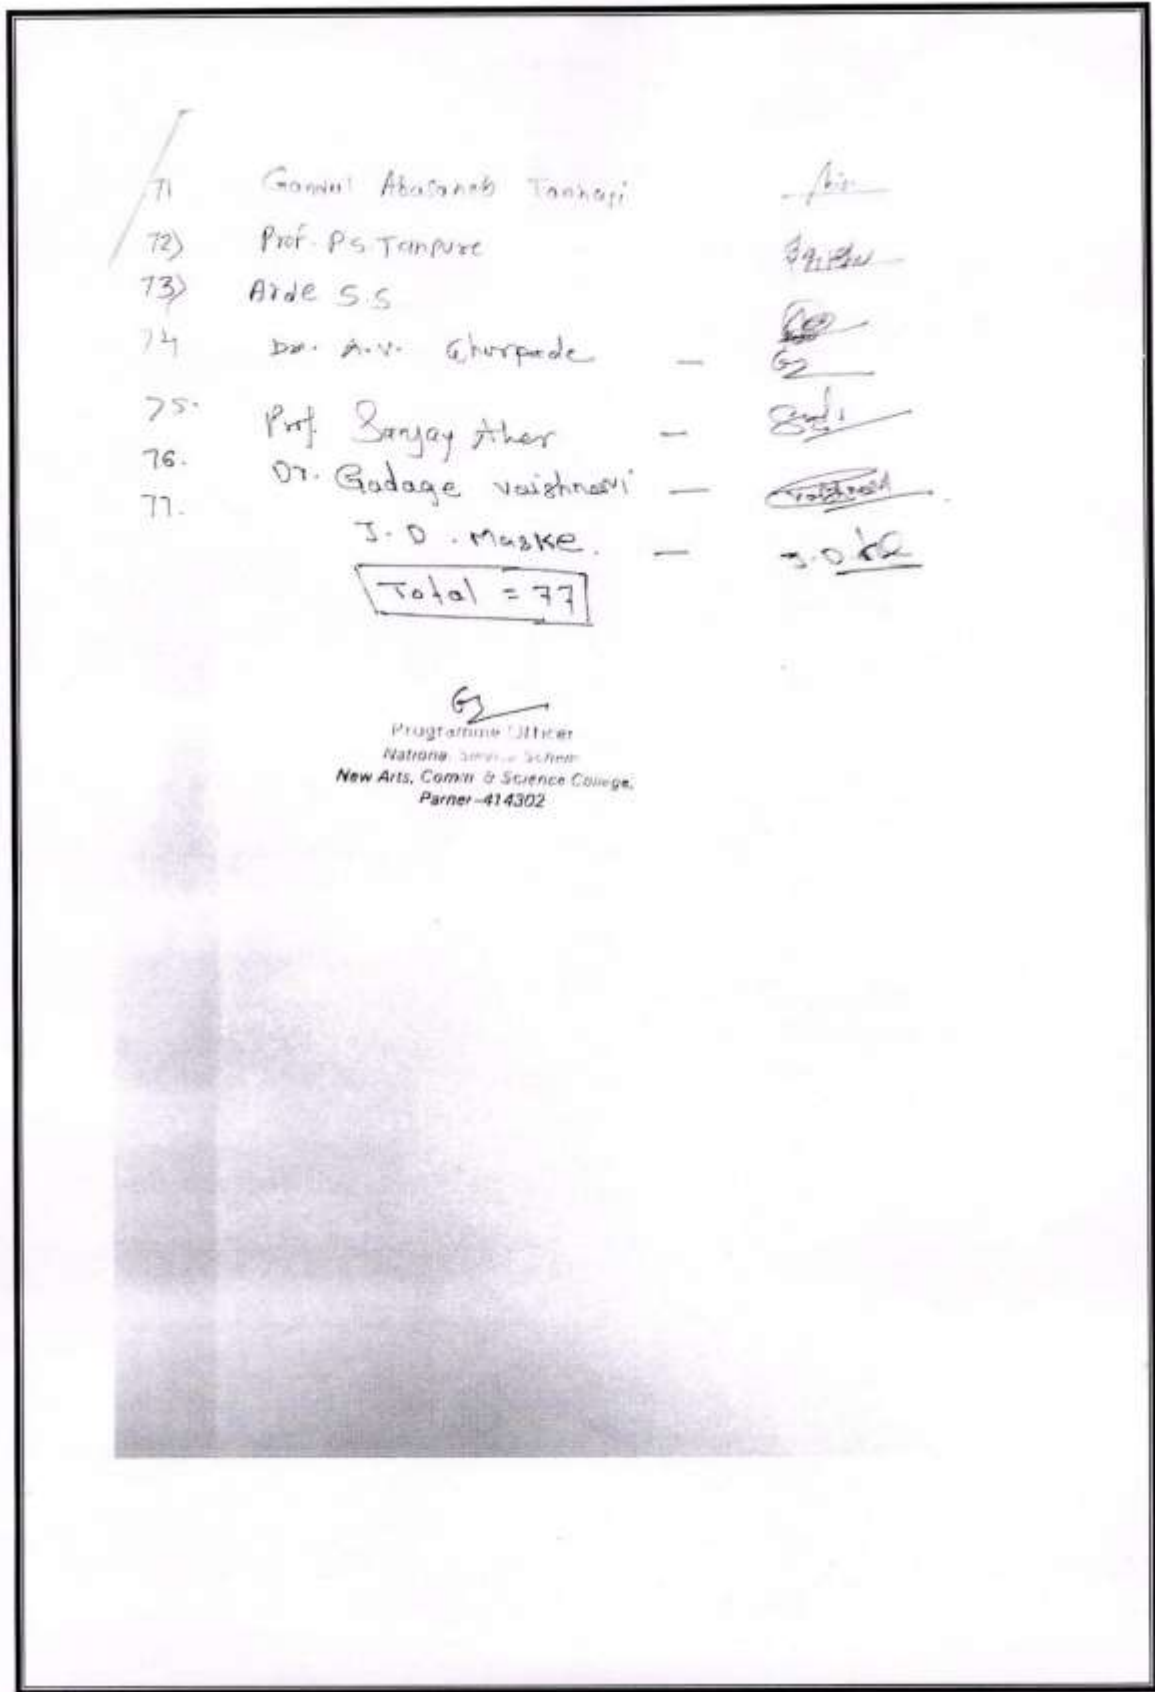 71 Abasaheb Tanhaji
72) Prof. P.S Tanpure
73) Arde S.S
74 Dr. A.V. Ghorpade —
75. Prof. Sanjay Aher —
76. Dr. Gadage vaishnavi —
77. J.D. Maske. —
Total = 77
Programme Officer
National Service Scheme
New Arts, Comm. & Science College,
Parner-414302